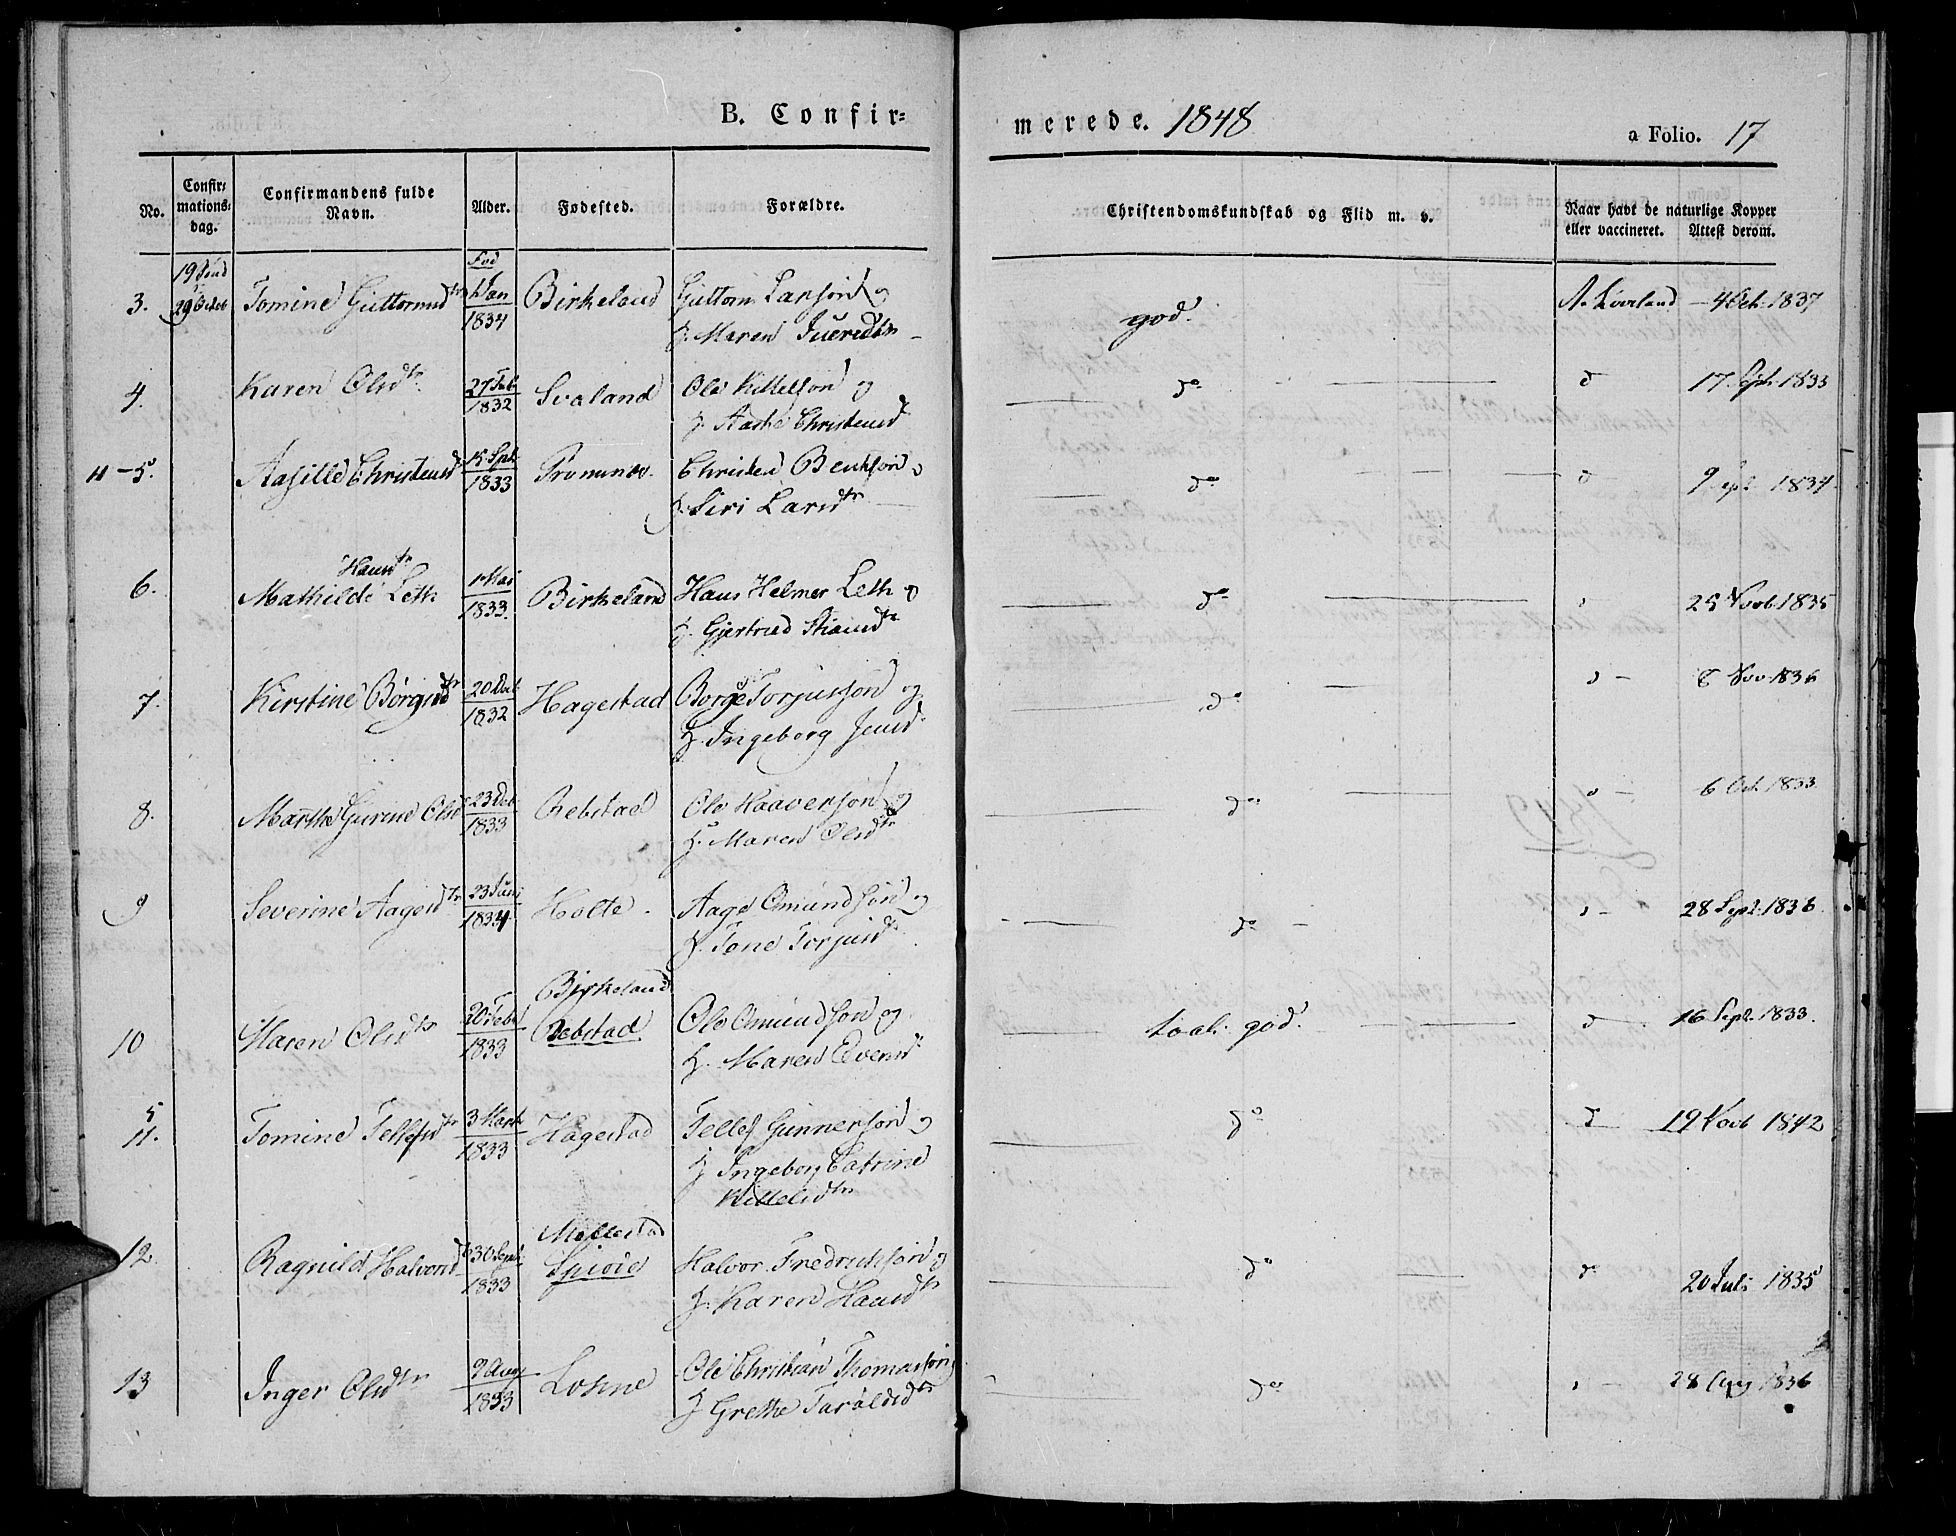 B. Confir=
merede. 1848
a Folio. 17
No.
Confir=
mations=
dag.
Confirmandens fulde
Navn.
Alder.
Fødested.
Forældre.
Christendomskundskab og Flid m. v.
Naar havt de naturlige Kopper
eller vaccineret. Attest derom.
3. Tomine Guttormsdtr 1 Jan 1834 Birkeland Guttorm Larsøn og
H. Maren
god. 4 Oct. 1837
4. Karen Olsdtr. 27 Feb 1832 Svaland Ole Kittelsøn og
H. Aaste Christensd
do d 17 Sept. 1833
11 - 5. Aasille Christensd 15 Spt. 1833 Christen Bentsøn og
H. Siri Larsdtr
do d 9 Sept 1834
6. Hansdtr
Mathilde Leth 1 Mai 1833. Birkeland Hans Helmer Leth og
H. Gjertrud
do 25 Novb 1835
7. Kirstine Børgesdtr 20 Oct 1832 Hagestad Børge Torjussøn og
H. Ingeborg Jensd
do 8 Nov. 1836
8. Marthe Gurine Olsd 23 Oct 1833 Rebstad Ole Haaversøn og
H. Maren Olsdtr
do 6 Oct. 1833
9 Severine Aagesdtr 23 Juni 1834 Holte. Aage Omundsøn og
H. Tone Torjusd
do 28 Sept. 1836
10 Maren Olsdtr 20 Feb 1833 Birkeland
Rebstad Ole Omundsøn og
H. Maren Evensd
god. d 16 Sept. 1833.
5
11. Tomine Tellefsdtr 3 Marts 1833 Hagestad Tellef Gunnersøn og
H. Ingeborg Catrine
Kittelsdtr
do d 19 Novb 1842
12. Ragnild Halvorsd 30 Sept. 1833 Mollestad
Halvor Fredriksøn og
H. Karen Hansdtr
do d 20 Juli 1835
13 Inger Olsdtr 9 Aug 1833 Losne Ole Christian Thomassøn
H Grethe Taraldsdtr
do 28 Aug 1836